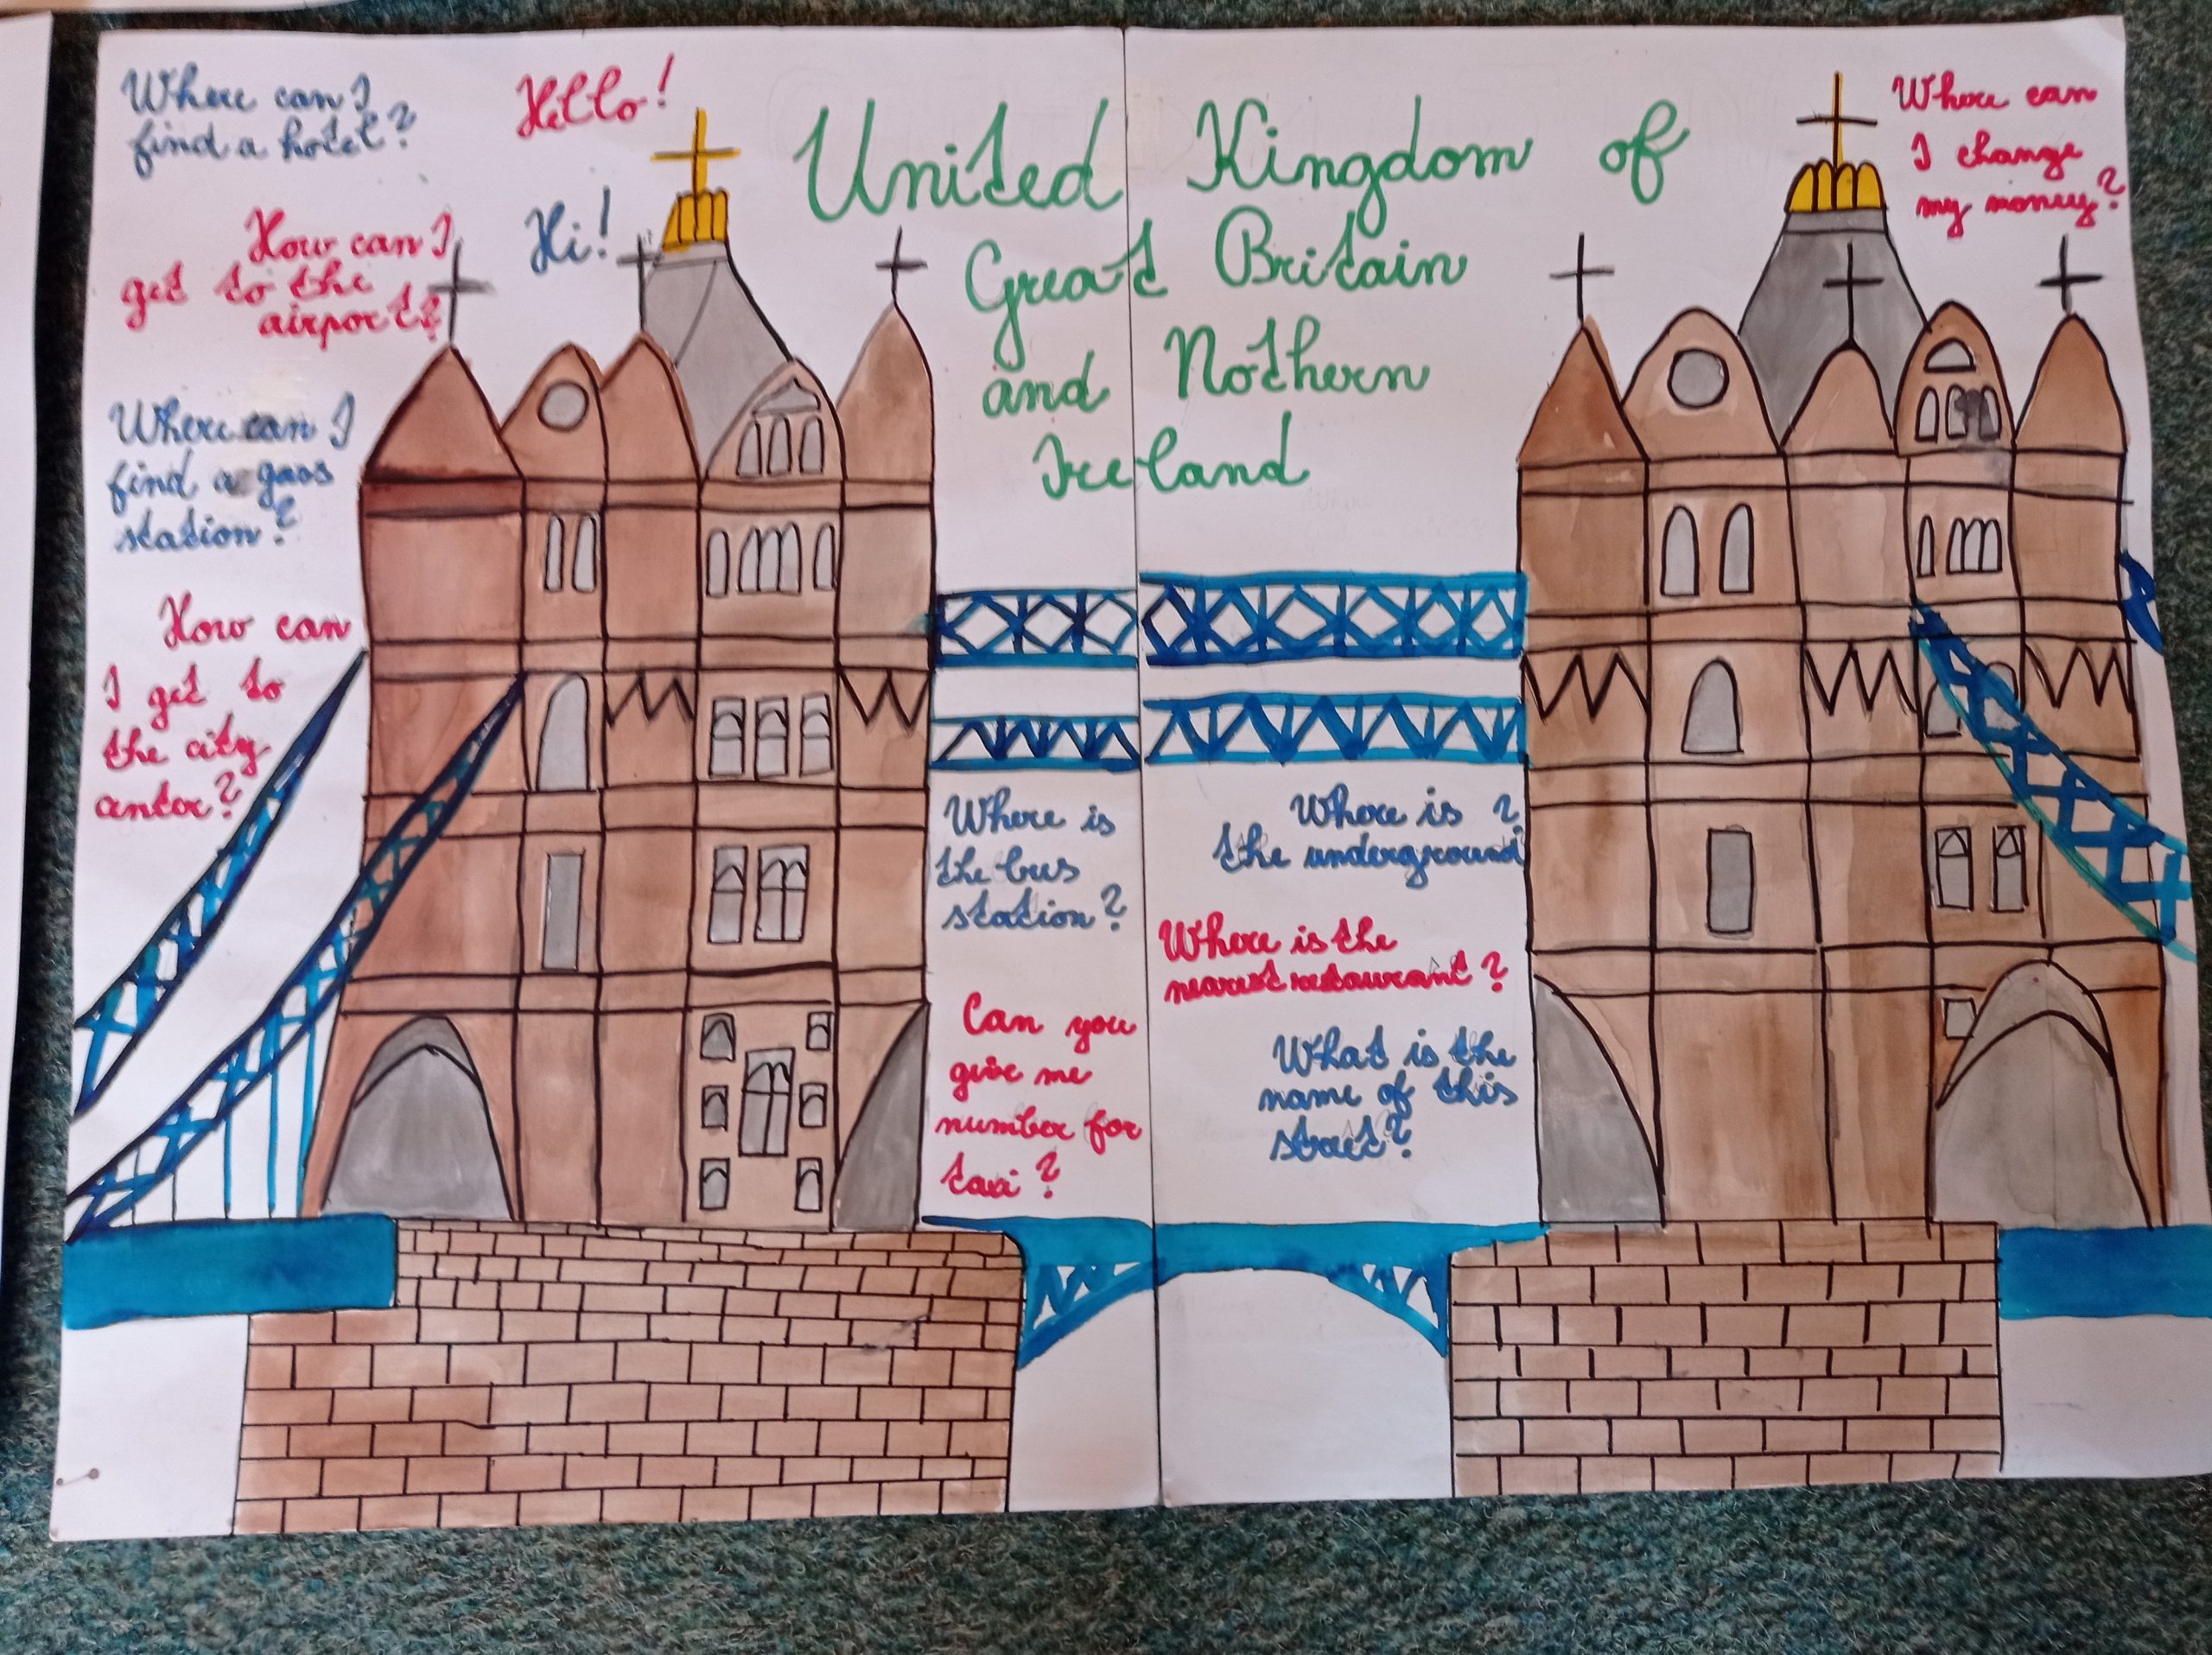 Where can I
find a hotel?
Hello!
Hi!
How can I
get to the
airport?
Where can I
find a gass
station?
How can
I get to
the city
centor?
United Kingdom of
Great Britain
and Nothern
Ireland
Where can
I change
my money?
Where is
the bus
station?
Can you
give me
number for
taxi?
Where is ?
the underground
Where is the
nearest restaurant?
What is the
name of this
street?